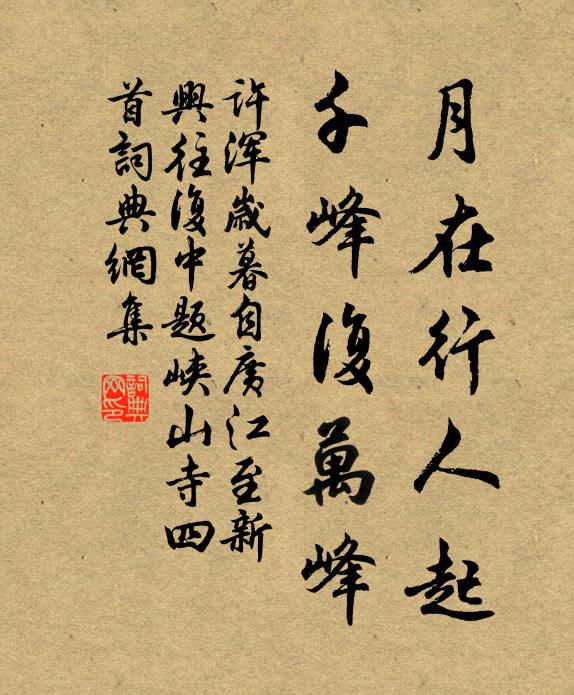 月在行人起
千峰復萬峰
許渾歲暮自廣江至新
興往復中題峽山寺四
首詞典網集
詞典
網印